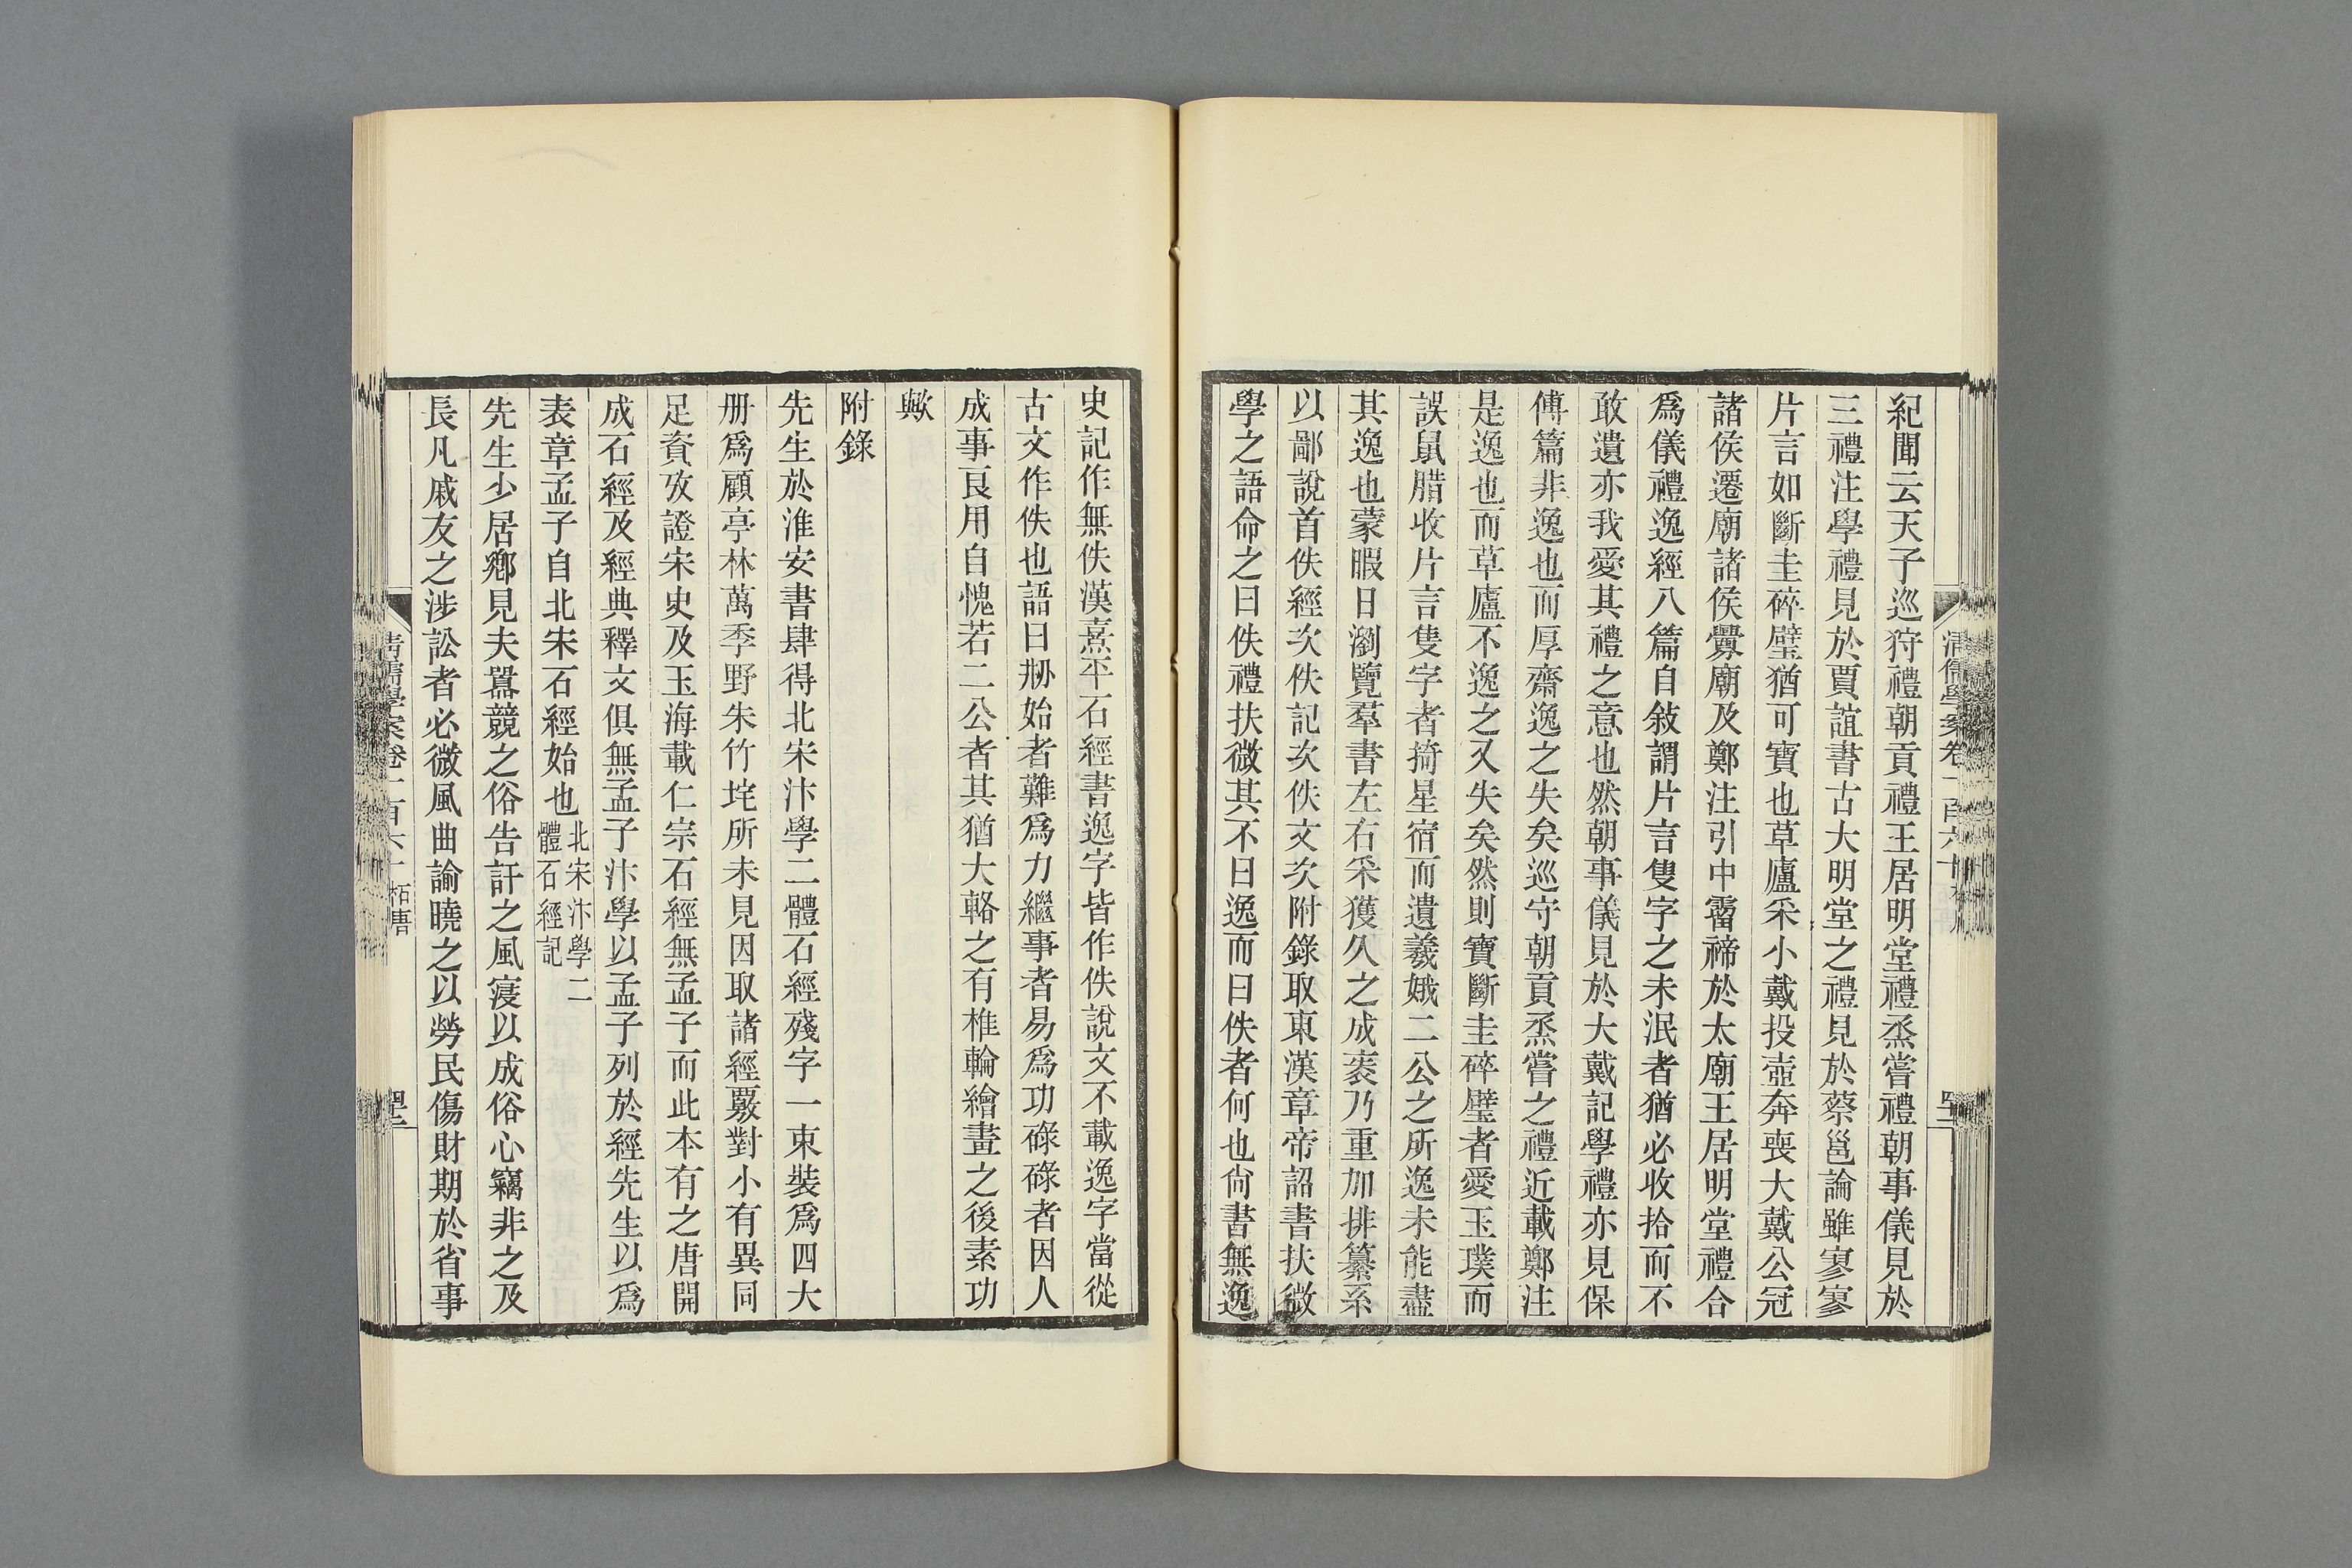 紀聞云天子巡狩禮朝貢禮王居明堂禮烝嘗禮朝事儀見於
三禮注學禮見於賈誼書古大明堂之禮見於蔡邕論雖寥寥
片言如斷圭碎璧猶可寶也草廬采小戴投壺奔喪大戴公冠
諸侯遷廟諸侯釁廟及鄭注引中霤禘於太廟王居明堂禮合
爲儀禮逸經八篇自敍謂片言隻字之未泯者猶必收拾而不
敢遺亦我愛其禮之意也然朝事儀見於大戴記學禮亦見保
傅篇非逸也而厚齋逸之失矣巡守朝貢烝嘗之禮近載鄭注
是逸也而草廬不逸之又失矣然則寶斷圭碎璧者愛玉璞而
誤鼠腊收片言隻字者掎星宿而遺羲娥二公之所逸未能盡
其逸也蒙暇日瀏覽羣書左右采獲久之成袠乃重加排纂系
以鄙說首佚經次佚記次佚文次附錄取東漢章帝詔書扶微
學之語命之曰佚禮扶微其不曰逸而曰佚者何也尙書無逸
史記作無佚漢熹平石經書逸字皆作佚說文不載逸字當從
古文作佚也語曰刱始者難爲力繼事者易爲功碌碌者因人
成事良用自愧若二公者其猶大輅之有椎輪繪畫之後素功
歟
附錄
先生於淮安書肆得北宋汴學二體石經殘字一束裝爲四大
册爲顧亭林萬季野朱竹垞所未見因取諸經覈對小有異同
足資攷證宋史及玉海載仁宗石經無孟子而此本有之唐開
成石經及經典釋文俱無孟子汴學以孟子列於經先生以爲
表章孟子自北宋石經始也北宋汴學二體石經記
先生少居鄕見夫嚚競之俗告訐之風寖以成俗心竊非之及
長凡戚友之涉訟者必微風曲諭曉之以勞民傷財期於省事
清儒學案卷一百六十 柘唐